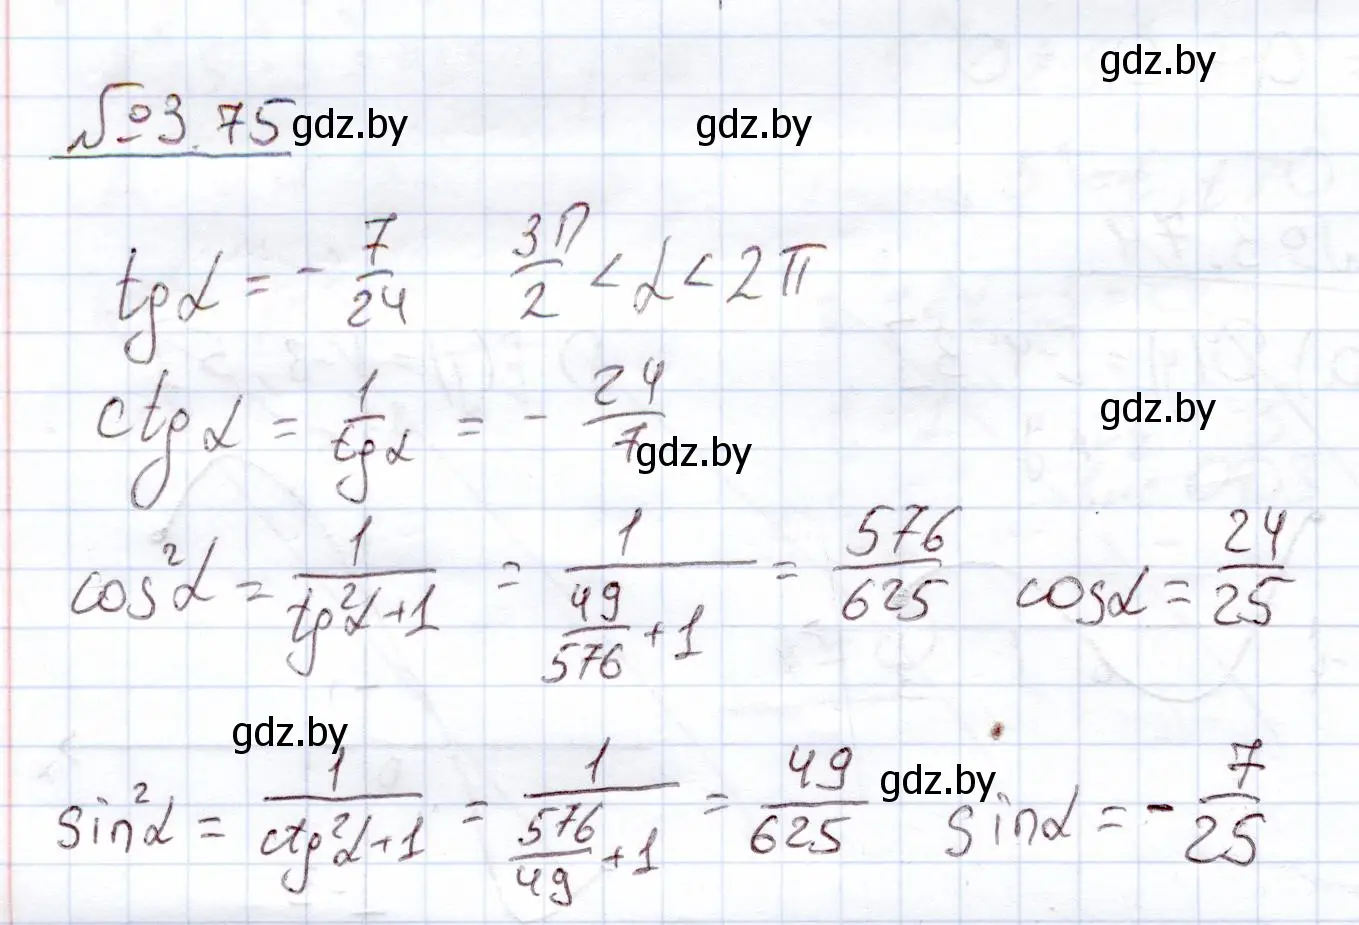 gdz.by
№3.75 gdz.by gdz.by
tgα = - 7/24 3π/2 < α < 2π
ctgα = 1/tgα = - 24/7 gdz.by
gdz.by
cos²α = 1/(tg²α+1) = 1/(49/576 + 1) = 576/625 cosα = 24/25
gdz.by gdz.by
sin²α = 1/(ctg²α+1) = 1/(576/49 + 1) = 49/625 sinα = - 7/25